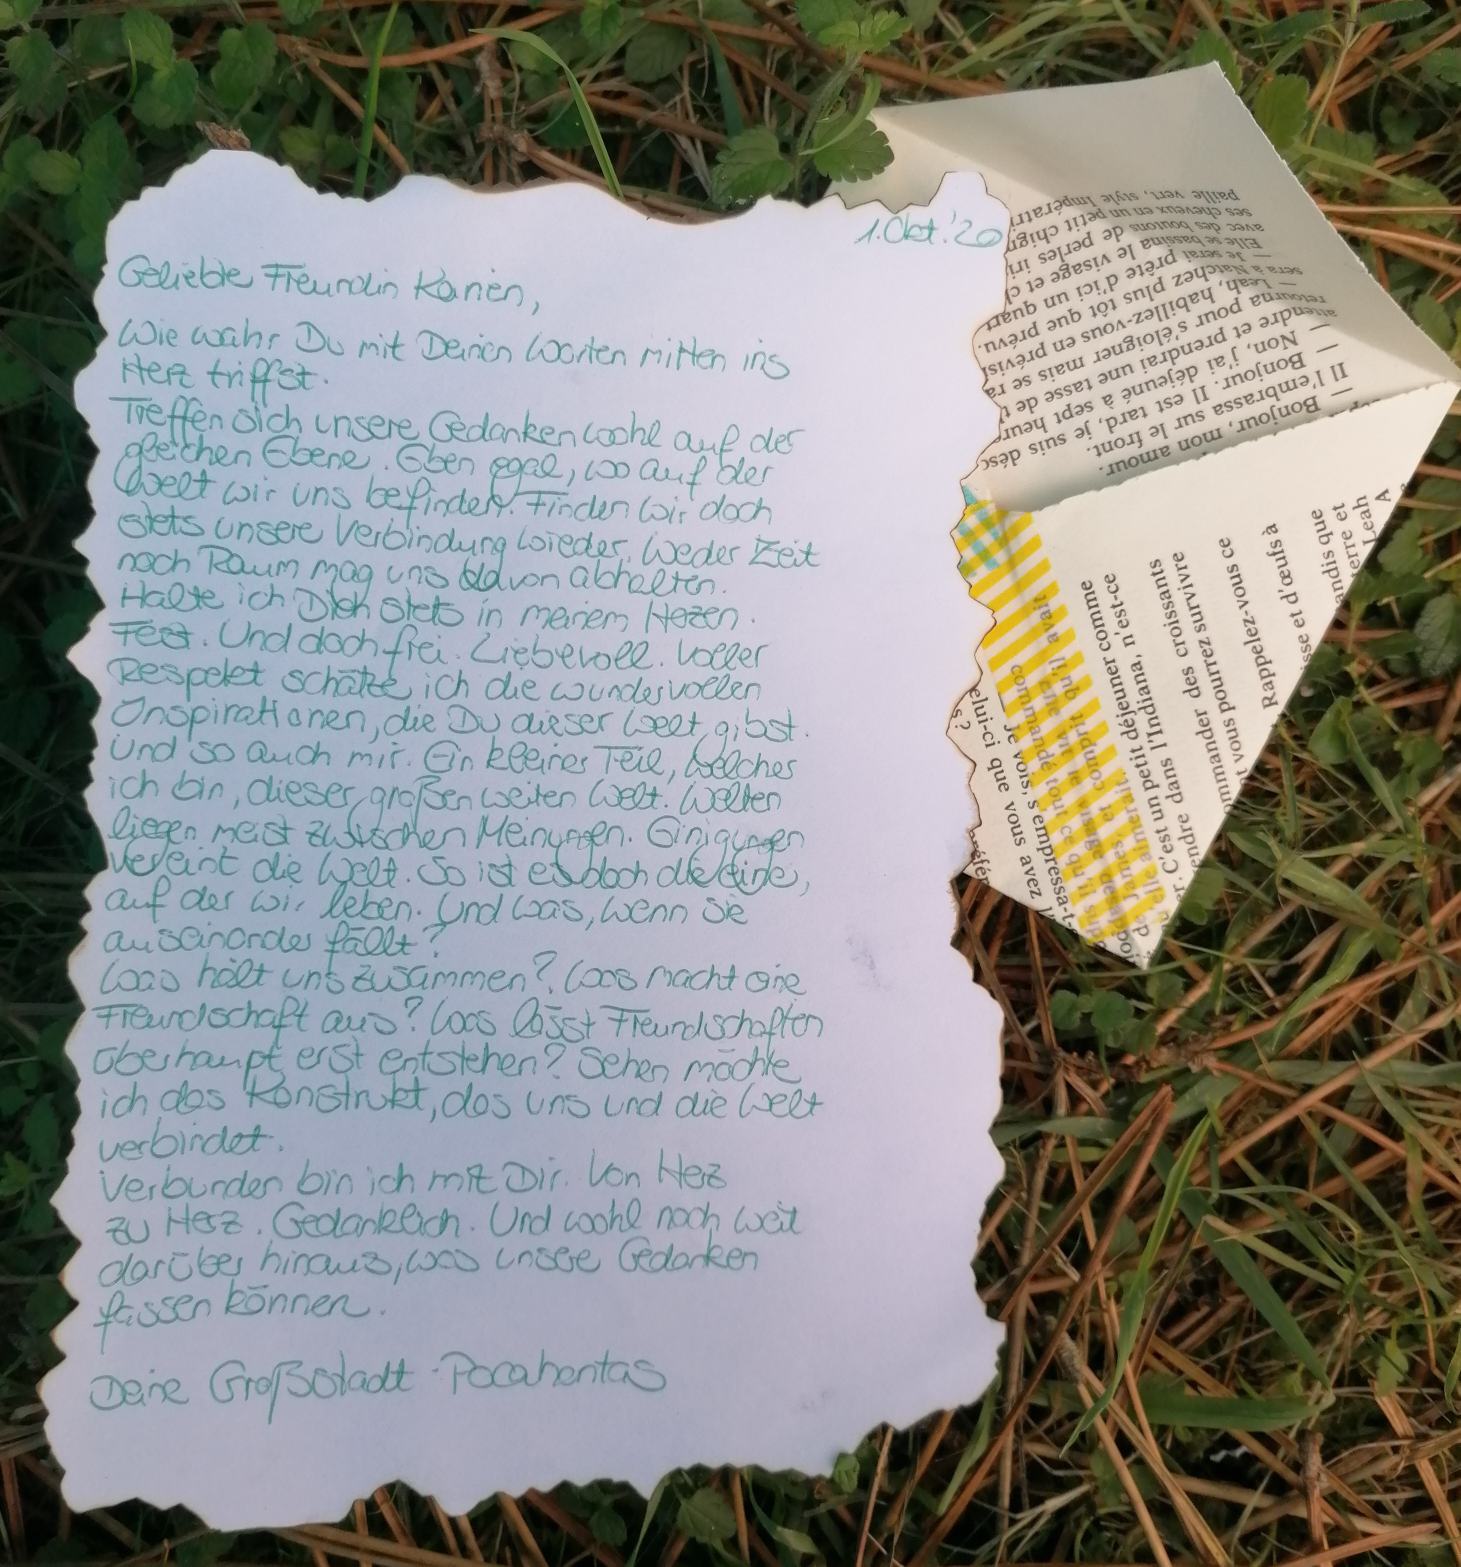 1. Okt. '20
Geliebte Freundin Karien,
Wie wahr Du mit Deinen Worten mitten ins
Herz triffst.
Treffen sich unsere Gedanken wohl auf der
gleichen Ebene. Eben egal, wo auf der
Welt wir uns befinden. Finden wir doch
stets unsere Verbindung wieder. Weder Zeit
noch Raum mag uns davon abhalten.
Halte ich Dich stets in meinem Herzen.
Fest. Und doch frei. Liebevoll. Voller
Respekt schätze ich die wundervollen
Inspirationen, die Du dieser Welt gibst.
Und so auch mir. Ein kleiner Teil, welcher
ich bin, dieser großen weiten Welt. Welten
liegen meist zwischen Meinungen. Einigungen
vereint die Welt. So ist es doch die eine,
auf der wir leben. Und was, wenn sie
auseinander fällt?
Was hält uns zusammen? Was macht eine
Freundschaft aus? Was lässt Freundschaften
überhaupt erst entstehen? Sehen möchte
ich das Konstrukt, das uns und die Welt
verbindet.
Verbunden bin ich mit Dir. Von Herz
zu Herz. Gedanklich. Und wohl noch weit
darüber hinaus, was unsere Gedanken
fassen können.
Deine Großstadt-Pocahontas
amour.
— Bonjour, mon
Il l'embrassa sur le front.
— Bonjour. Il est tard, je suis
— Non, j'ai déjeuné à sept
attendre et prendrai une tasse de
retourna pour s'éloigner mais se
— Leah, habillez-vous en
sera à Natchez plus tôt que prévu.
— Je serai prête d'ici un
Elle se bassina le visage et
avec des boutons de perles
ses cheveux en un petit
paille vert, style
elui-ci que vous avez
s?
— Je vois, s'empressa-t-
commandé tout ce qu'il
qu'il avait
r. C'est un petit déjeuner comme
endre dans l'Indiana, n'est-ce
mmander des croissants
t vous pourrez survivre
Rappelez-vous ce
sse et d'œufs à
andis que
erre et
Leah
A